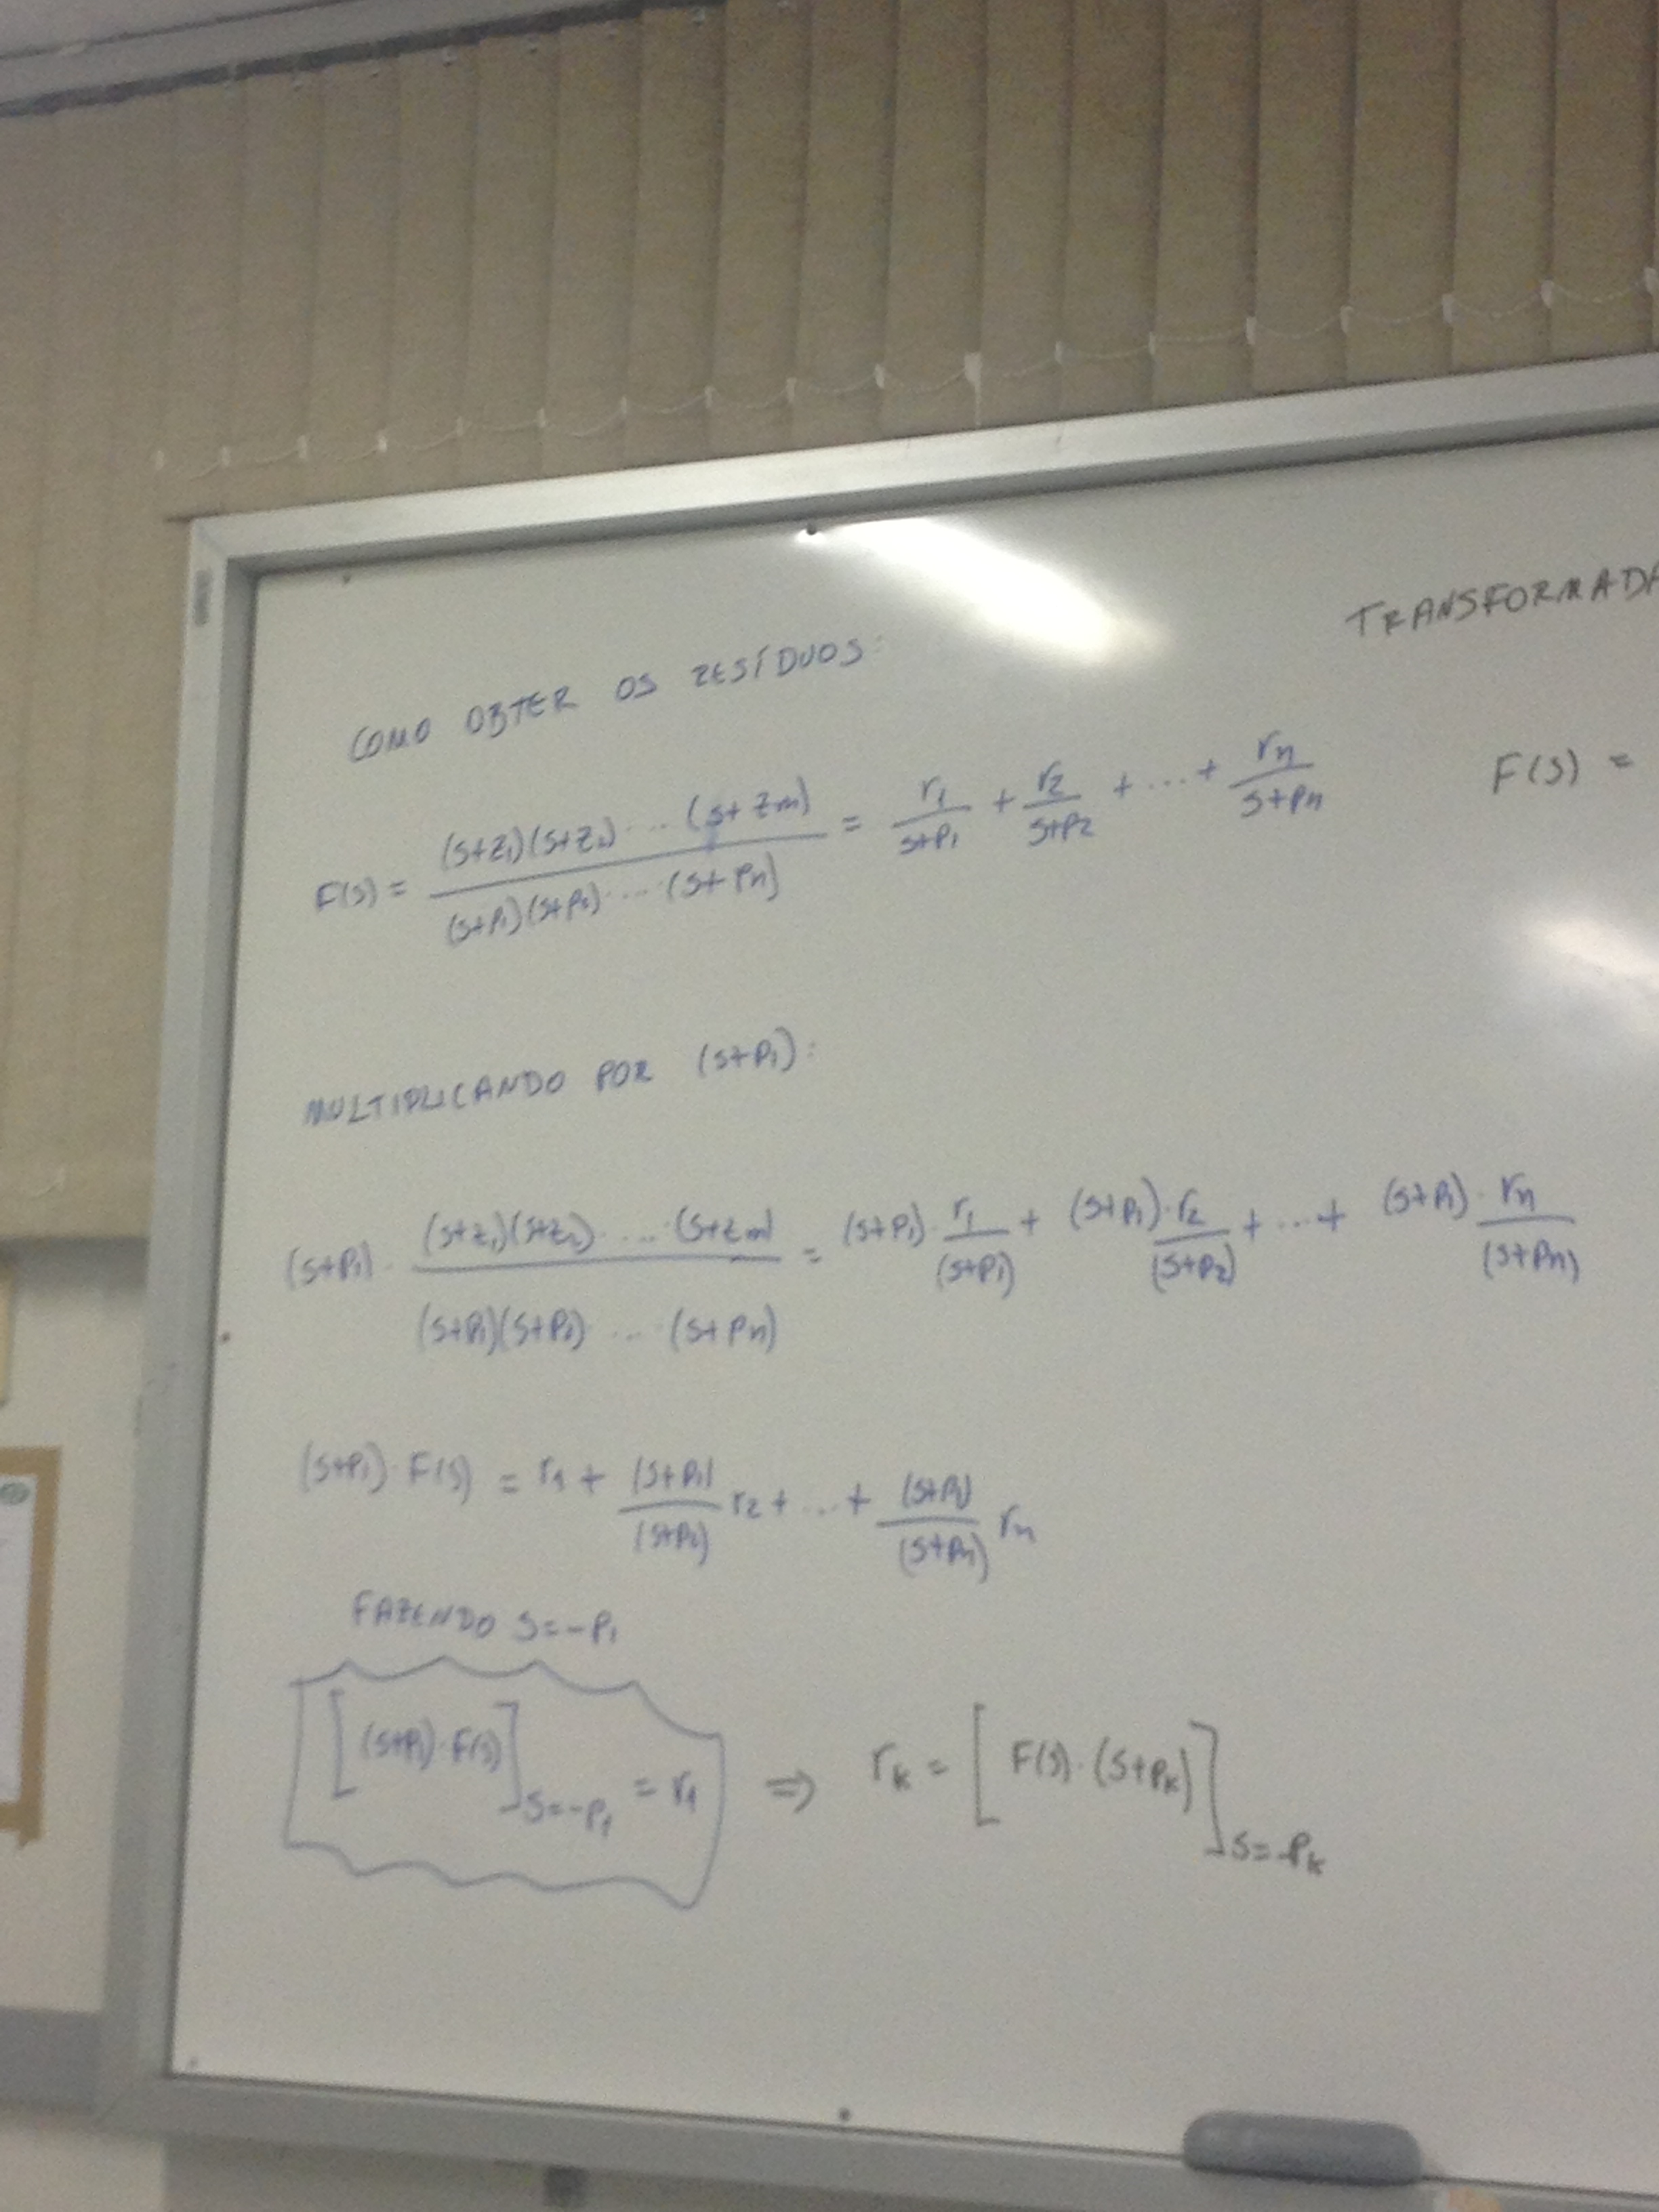 COMO OBTER OS RESÍDUOS:
TRANSFORMADA
F(s) = (s+z1)(s+z2) ... (s+zm) / (s+p1)(s+p2) ... (s+pn) = r1/(s+p1) + r2/(s+p2) + ... + rn/(s+pn)
F(s) =
MULTIPLICANDO POR (s+p1):
(s+p1) · (s+z1)(s+z2) ... (s+zm) / (s+p1)(s+p2) ... (s+pn) = (s+p1) · r1/(s+p1) + (s+p1) · r2/(s+p2) + ... + (s+p1) · rn/(s+pn)
(s+p1) · F(s) = r1 + (s+p1)/(s+p2) r2 + ... + (s+p1)/(s+pn) rn
FAZENDO s=-p1
[(s+p1) · F(s)] s=-p1 = r1 ⇒ rk = [F(s) · (s+pk)] s=-pk